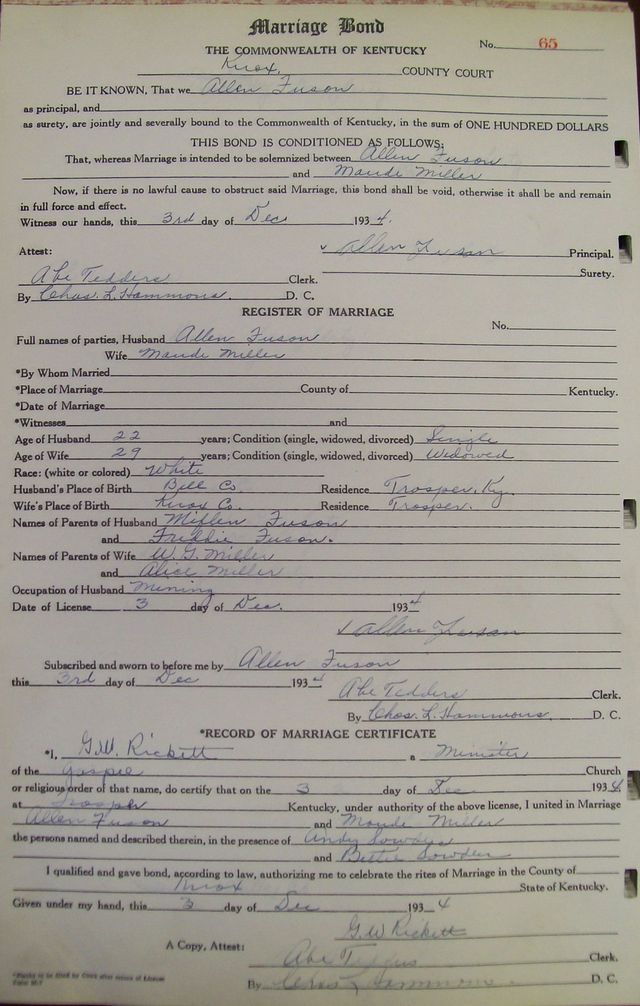 Marriage Bond
THE COMMONWEALTH OF KENTUCKY
No. 65
Knox, COUNTY COURT
BE IT KNOWN, That we Allen Fuson
as principal, and
as surety, are jointly and severally bound to the Commonwealth of Kentucky, in the sum of ONE HUNDRED DOLLARS
THIS BOND IS CONDITIONED AS FOLLOWS:
That, whereas Marriage is intended to be solemnized between Allen Fuson
and Maude Miller
Now, if there is no lawful cause to obstruct said Marriage, this bond shall be void, otherwise it shall be and remain
in full force and effect.
Witness our hands, this 3rd day of Dec 1934.
Attest: Allen Fuson Principal.
Surety.
Abe Tedders Clerk.
By Chas. L. Hammons. D. C.
REGISTER OF MARRIAGE
No.
Full names of parties, Husband Allen Fuson
Wife Maude Miller
*By Whom Married
*Place of Marriage County of Kentucky.
*Date of Marriage
*Witnesses and
Age of Husband 22 years; Condition (single, widowed, divorced) Single
Age of Wife 29 years; Condition (single, widowed, divorced) Widowed
Race: (white or colored) White
Husband's Place of Birth Bell Co. Residence Trosper, Ky.
Wife's Place of Birth Knox Co. Residence Trosper.
Names of Parents of Husband Fuson
and Fuson.
Names of Parents of Wife W. G. Miller
and Alice Miller
Occupation of Husband Mining
Date of License 3 day of Dec. 1934
Allen Fuson
Subscribed and sworn to before me by Allen Fuson
this 3rd day of Dec 1934
Abe Tedders Clerk.
By Chas. L. Hammons. D. C.
*RECORD OF MARRIAGE CERTIFICATE
*I, G.W. Rickett a Minister
of the Gospel Church
or religious order of that name, do certify that on the 3 day of Dec 1934
at Kentucky, under authority of the above license, I united in Marriage
Allen Fuson and Maude Miller
the persons named and described therein, in the presence of Andy Sowders
and Bettie Sowders
I qualified and gave bond, according to law, authorizing me to celebrate the rites of Marriage in the County of
Knox State of Kentucky.
Given under my hand, this 3 day of Dec 1934
G.W Rickett
A Copy, Attest: Abe Clerk.
By Chas L Hammons D. C.
*Blanks to be filled by Clerk after return of License